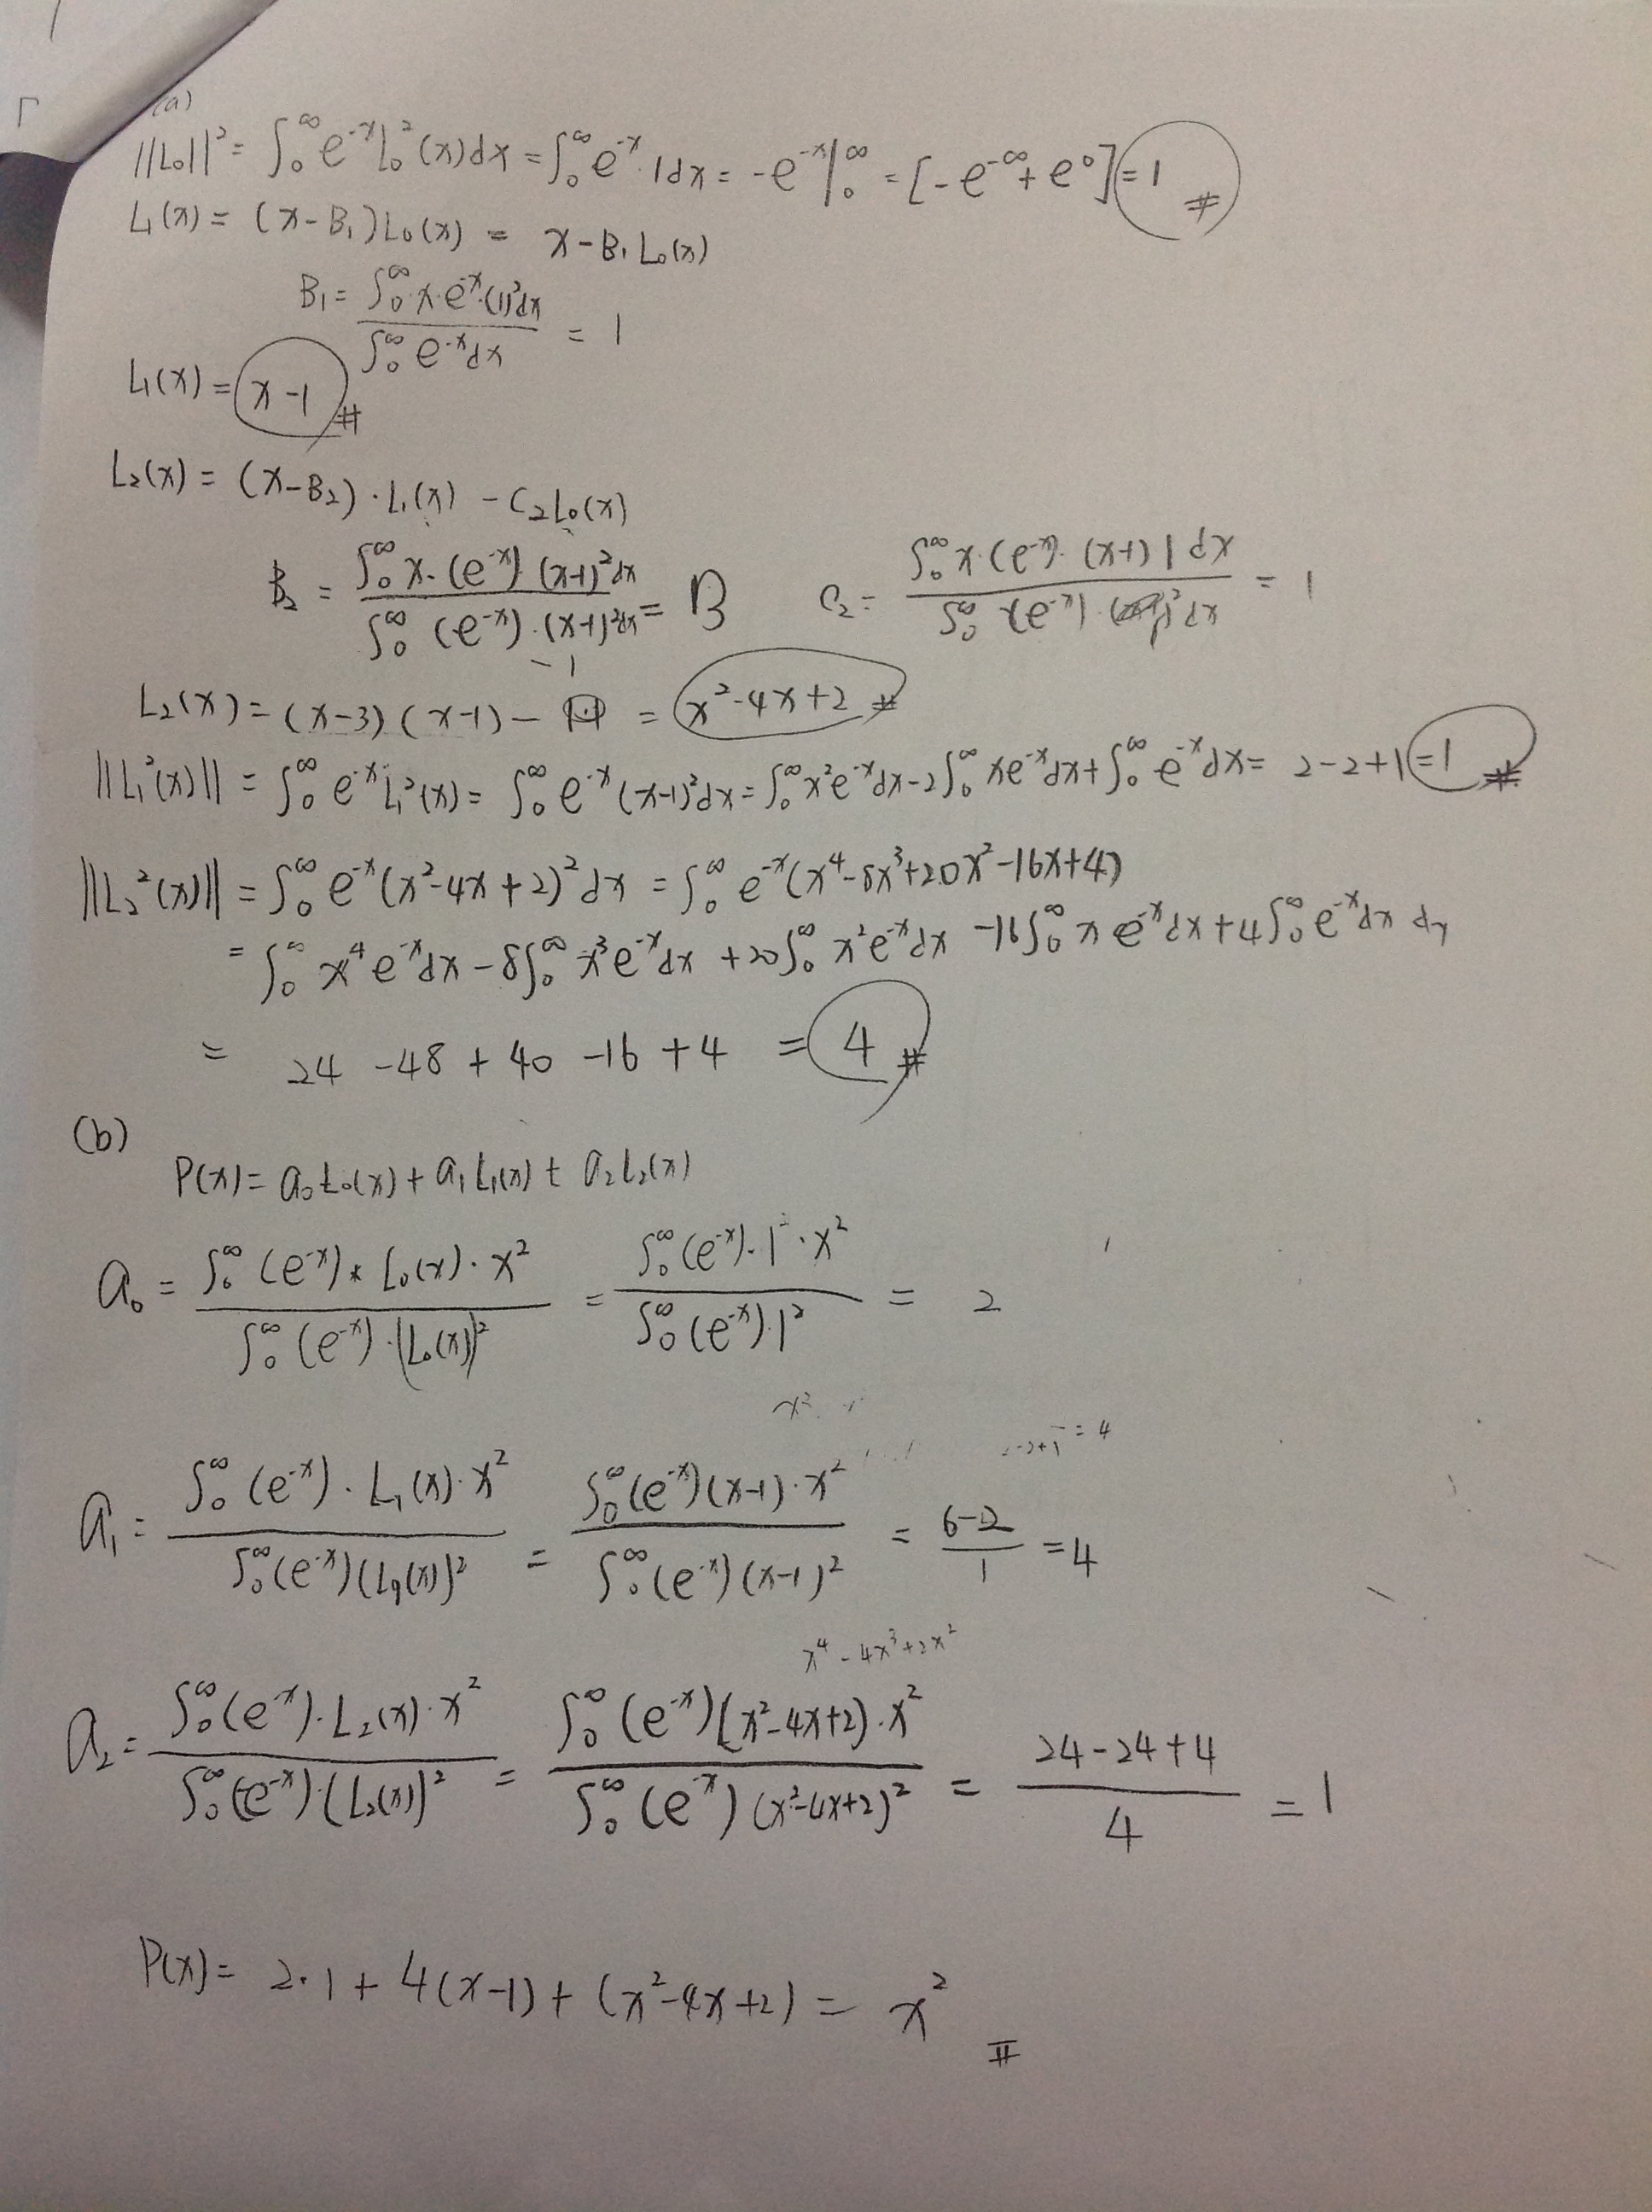 (a)
||L₀||² = ∫₀^∞ e^-x L₀²(x)dx = ∫₀^∞ e^-x · 1dx = -e^-x|₀^∞ = [-e^-∞ + e⁰] = 1 #
L₁(x) = (x-B₁)L₀(x) = x-B₁L₀(x)
B₁ = ∫₀^∞ x·e^-x·(1)²dx / ∫₀^∞ e^-x dx = 1
L₁(x) = x-1 #
L₂(x) = (x-B₂)·L₁(x) - C₂L₀(x)
B₂ = ∫₀^∞ x·(e^-x)(x-1)²dx / ∫₀^∞ (e^-x)·(x-1)²dx = 3 C₂ = ∫₀^∞ x·(e^-x)·(x-1) 1 dx / ∫₀^∞ (e^-x)·(1)²dx = 1
L₂(x) = (x-3)(x-1) - 1 = x²-4x+2 #
||L₁²(x)|| = ∫₀^∞ e^-x L₁²(x) = ∫₀^∞ e^-x (x-1)²dx = ∫₀^∞ x²e^-x dx - 2∫₀^∞ xe^-x dx + ∫₀^∞ e^-x dx = 2-2+1 = 1 #
||L₂²(x)|| = ∫₀^∞ e^-x(x²-4x+2)²dx = ∫₀^∞ e^-x(x⁴-8x³+20x²-16x+4)
= ∫₀^∞ x⁴e^-x dx - 8∫₀^∞ x³e^-x dx + 20∫₀^∞ x²e^-x dx - 16∫₀^∞ x e^-x dx + 4∫₀^∞ e^-x dx dx
= 24 -48 + 40 -16 + 4 = 4 #
(b)
P(x) = a₀L₀(x) + a₁L₁(x) + a₂L₂(x)
a₀ = ∫₀^∞ (e^-x)*L₀(x)·x² / ∫₀^∞ (e^-x)·(L₀(x))² = ∫₀^∞ (e^-x)·1·x² / ∫₀^∞ (e^-x)·1² = 2
x²
= 4
a₁ = ∫₀^∞ (e^-x)·L₁(x)·x² / ∫₀^∞ (e^-x)(L₁(x))² = ∫₀^∞ (e^-x)(x-1)·x² / ∫₀^∞ (e^-x)(x-1)² = 6-2 / 1 = 4
x⁴-4x³+2x²
a₂ = ∫₀^∞ (e^-x)·L₂(x)·x² / ∫₀^∞ (e^-x)·(L₂(x))² = ∫₀^∞ (e^-x)(x²-4x+2)·x² / ∫₀^∞ (e^-x)(x²-4x+2)² = 24-24+4 / 4 = 1
P(x) = 2·1 + 4(x-1) + (x²-4x+2) = x² #